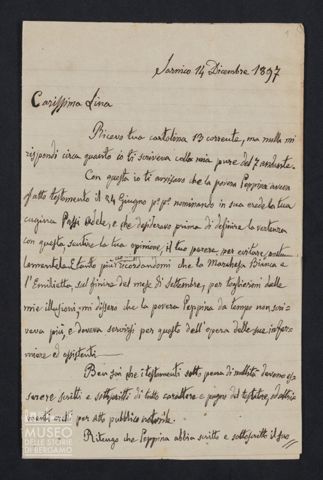 Sarnico 14 Dicembre 1897
Carissima Lina
Ricevo tua cartolina 13 corrente, ma nulla mi
rispondi circa quanto io ti scriveva colla mia pure del 7 andante.
Con questa io ti avvisava che la povera Peppina aveva
fatto testamento il 24 Giugno p.º p.º nominando in sua erede la tua
cugina Pozzi Adele, e che desiderava prima di definire la vertenza
con questa, sentire la tua opinione, il tuo parere, per evitare
lamentele. E tanto più ricordandomi che la Marchesa Bianca e
l'Emilietta, sul finire del mese di Settembre, per togliermi dalle
mie illusioni, mi dissero che la povera Peppina da tempo non scri-
veva più, e doveva servirsi per questo dell'opera delle sue infer-
miere ed assistenti.
Ben sai che i testamenti sotto pena di nullità devono es-
sere scritti e sottoscritti di tutto carattere e pugno del testatore, ed altri-
menti eretti per atto pubblico notarile.
Ritengo che Peppina abbia scritto e sottoscritto il suo
MUSEO
DELLE STORIE
DI BERGAMO